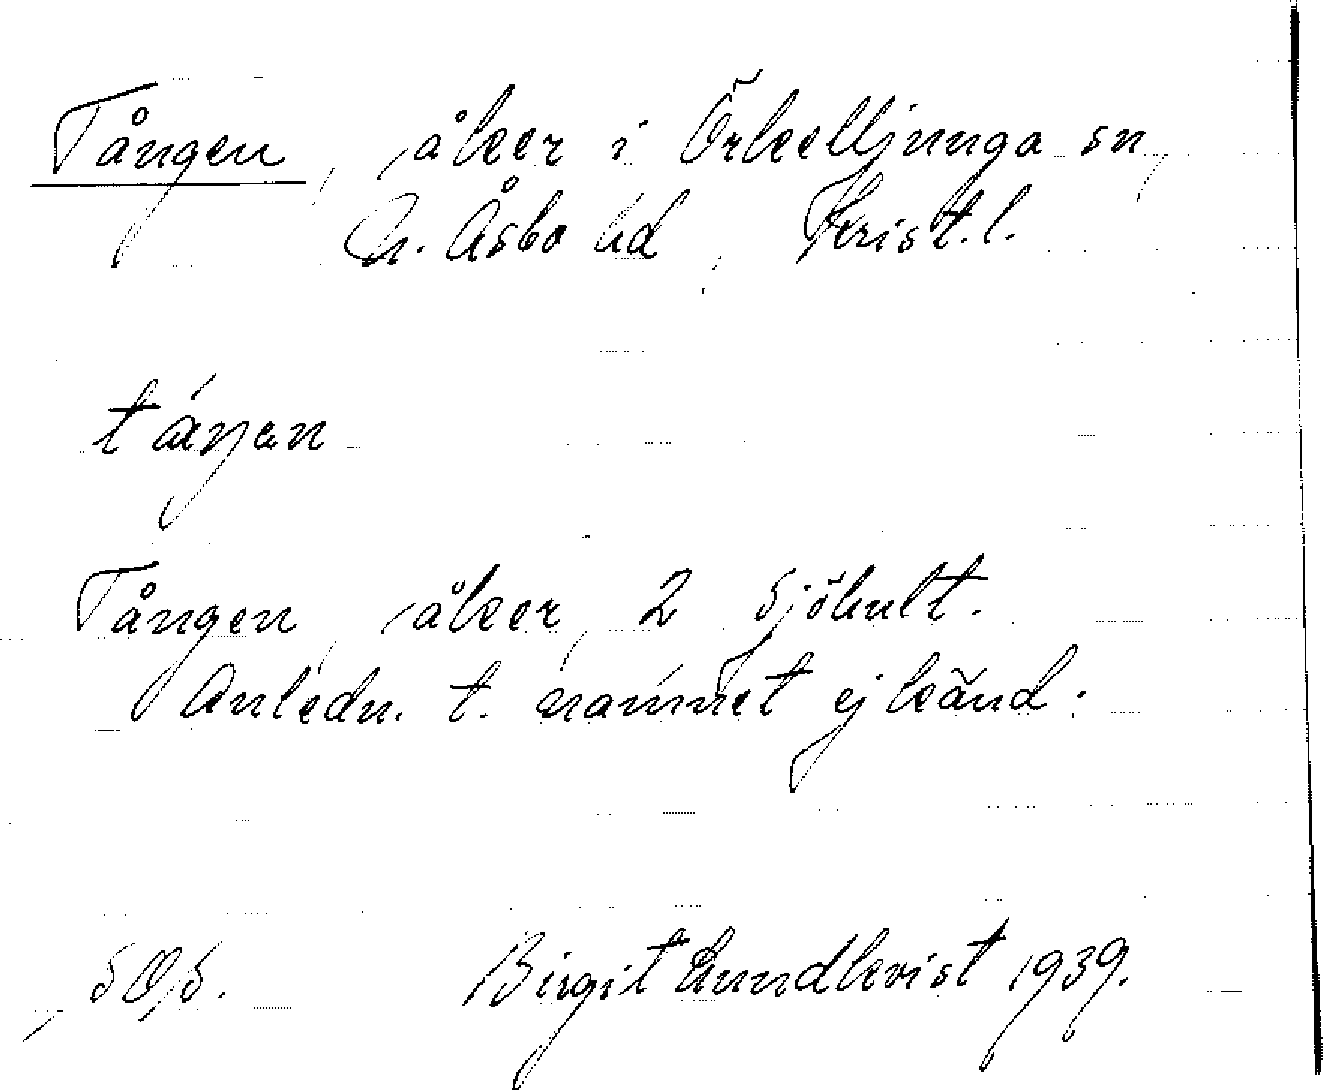 Tången, åker i Örkelljunga sn,
N. Åsbo hd, Krist. l.
Tången, åker, 2 Sjöhult.
Anledn. t. namnet ej känd.
Birgit Lundkvist 1939.